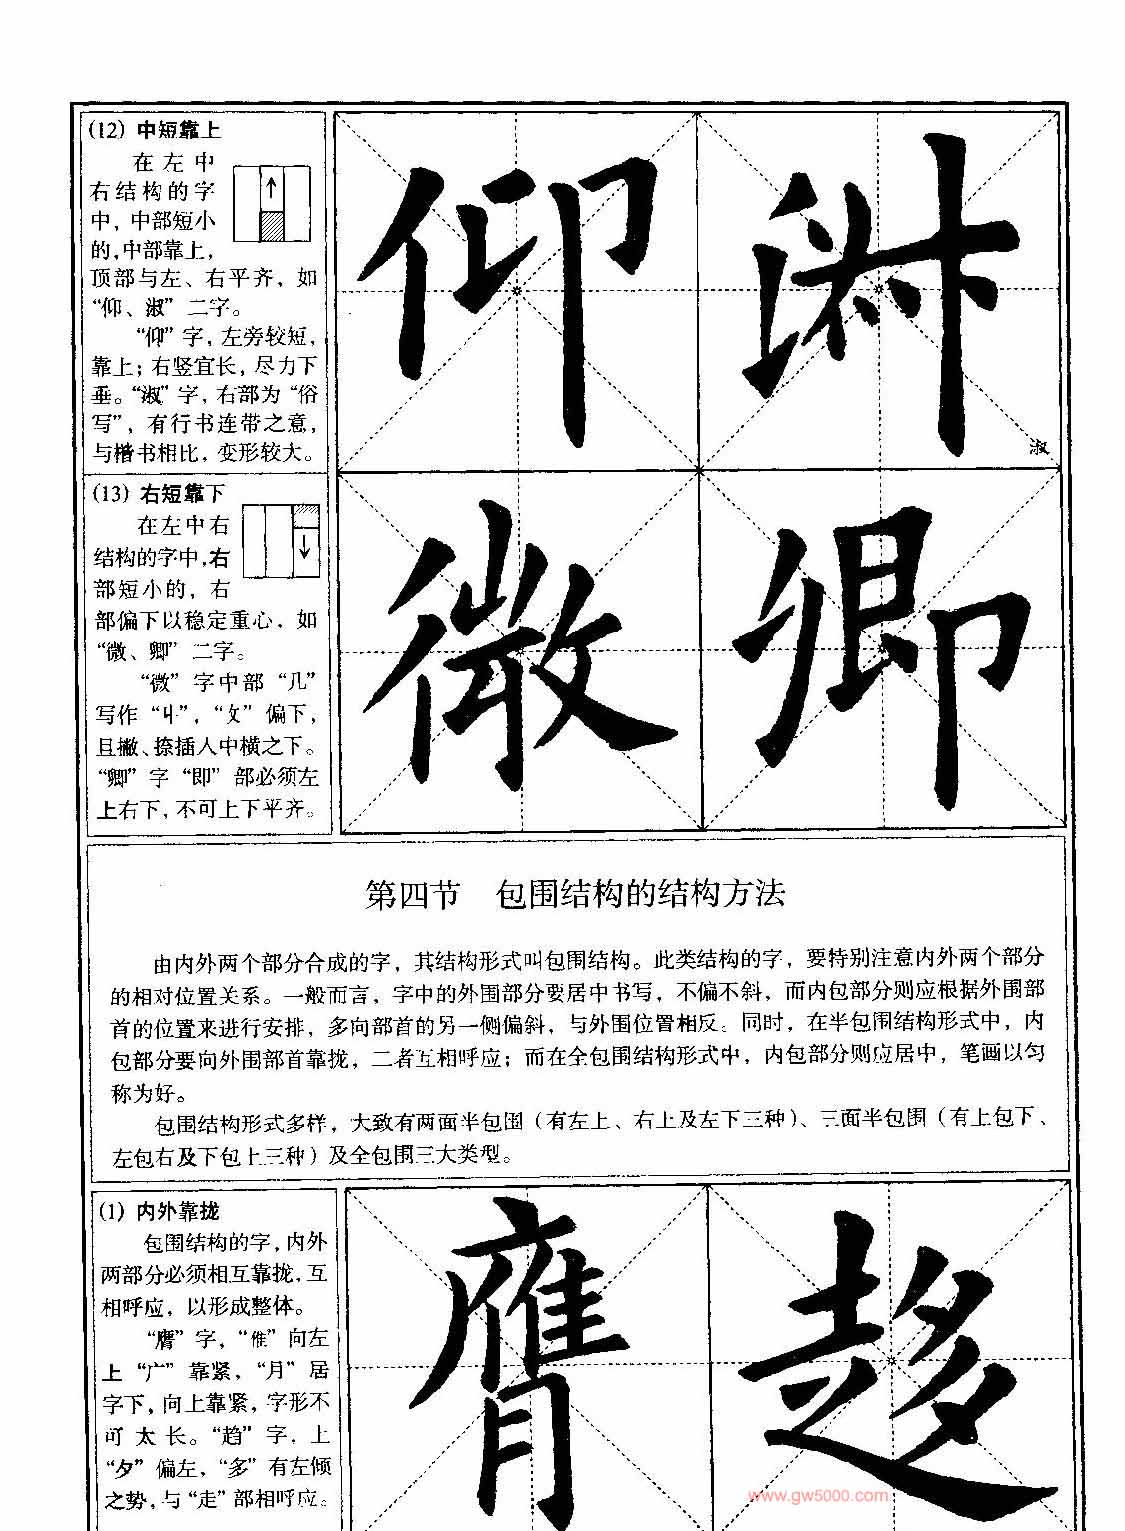 (12) 中短靠上
在左中
右结构的字
中，中部短小
的，中部靠上，
顶部与左、右平齐，如
“仰、淑”二字。
“仰”字，左旁较短，
靠上；右竖宜长，尽力下
垂。“淑”字，右部为“俗
写”，有行书连带之意，
与楷书相比，变形较大。
仰
淑
淑
(13) 右短靠下
在左中右
结构的字中，右
部短小的，右
部偏下以稳定重心，如
“微、卿”二字。
“微”字中部“几”
写作“”，“攵”偏下，
且撇、捺插人中横之下。
“卿”字“即”部必须左
上右下，不可上下平齐。
微
卿
第四节 包围结构的结构方法
由内外两个部分合成的字，其结构形式叫包围结构。此类结构的字，要特别注意内外两个部分
的相对位置关系。一般而言，字中的外围部分要居中书写，不偏不斜，而内包部分则应根据外围部
首的位置来进行安排，多向部首的另一侧偏斜，与外围位置相反。同时，在半包围结构形式中，内
包部分要向外围部首靠拢，二者互相呼应；而在全包围结构形式中，内包部分则应居中，笔画以匀
称为好。
包围结构形式多样，大致有两面半包围（有左上、右上及左下三种）、三面半包围（有上包下、
左包右及下包上三种）及全包围三大类型。
(1) 内外靠拢
包围结构的字，内外
两部分必须相互靠拢，互
相呼应，以形成整体。
“膺”字，“倠”向左
上“广”靠紧，“月”居
字下，向上靠紧，字形不
可太长。“趋”字，上
“夕”偏左，“多”有左倾
之势，与“走”部相呼应。
膺
趍
www.gw5000.com